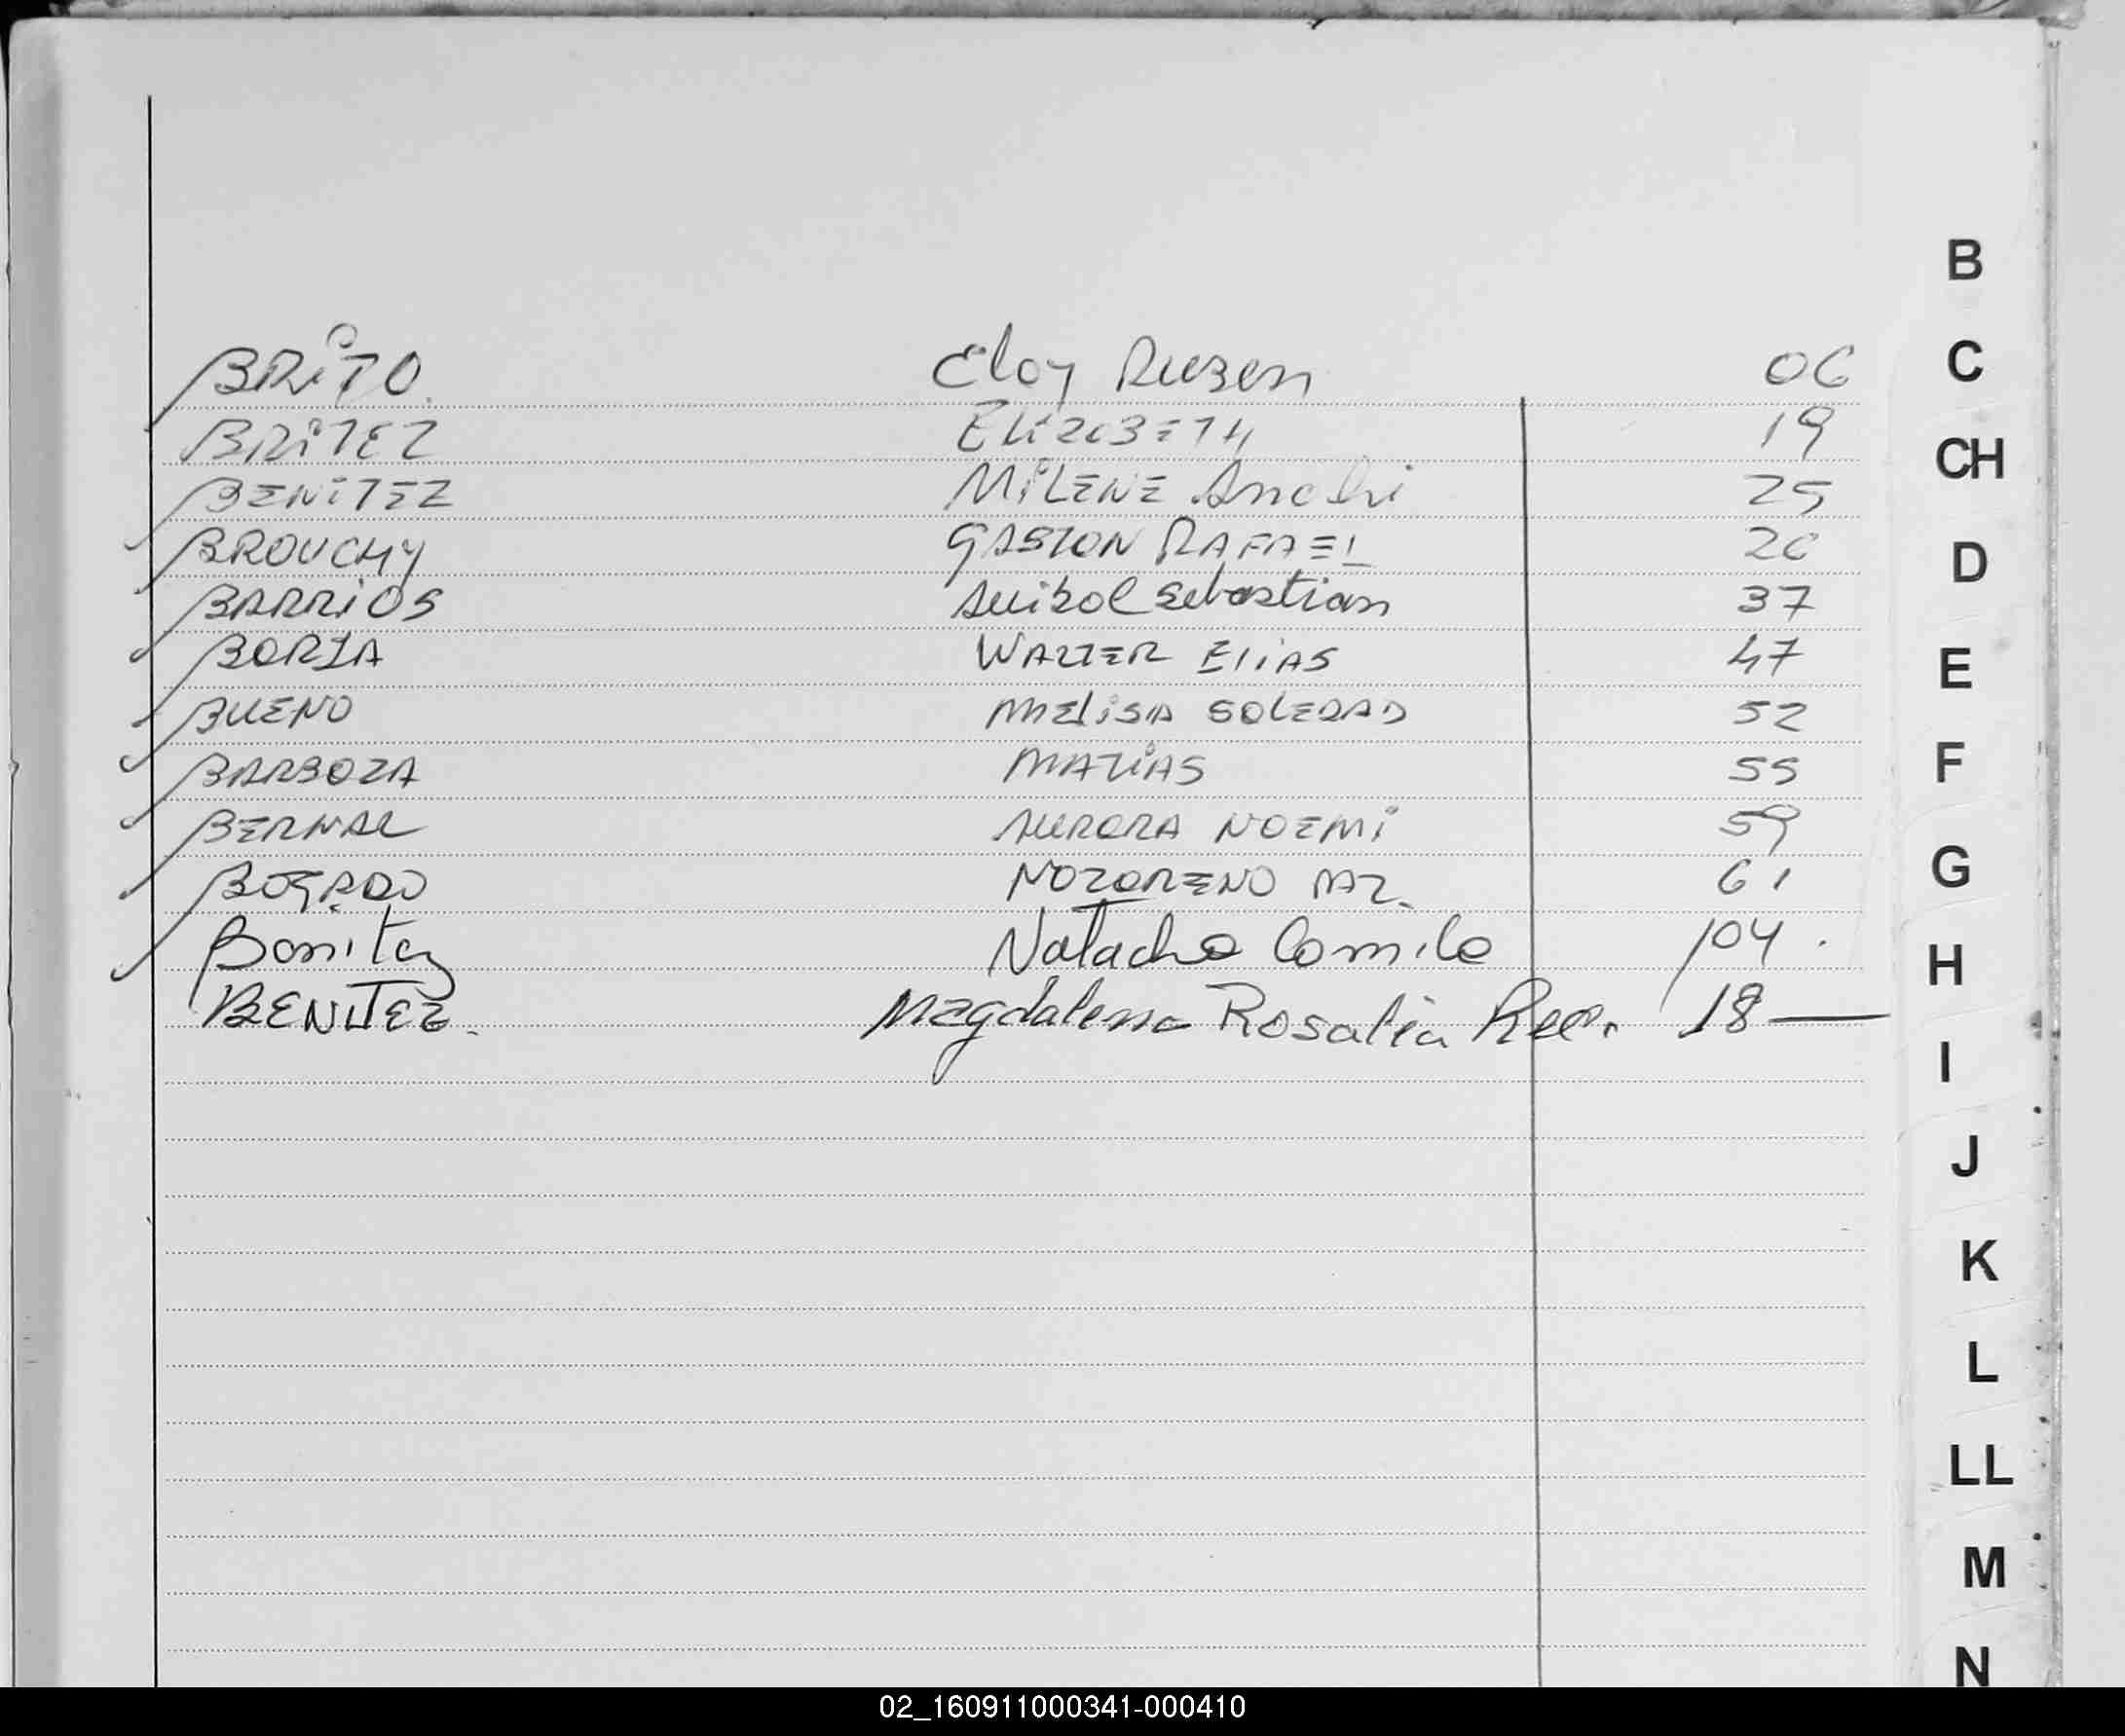 B
BRITO. Eloy Ruben 06
C
BRITEZ ELIZABETH 19
CH
BENITEZ MILENE Anahi 25
BROUCHY GASTON RAFAEL 26
D
BARRIOS Anibal Sebastian 37
BORJA WALTER ELIAS 47
E
BUENO MELISA SOLEDAD 52
BARBOZA MATIAS 55
F
BERNAL AURORA NOEMI 59
BOGADO NAZARENO 61
G
Benitez Natacha Camila 104.
H
BENITEZ. Magdalena Rosalia Rec. 18—
I
J
K
L
LL
M
N
02_160911000341-000410